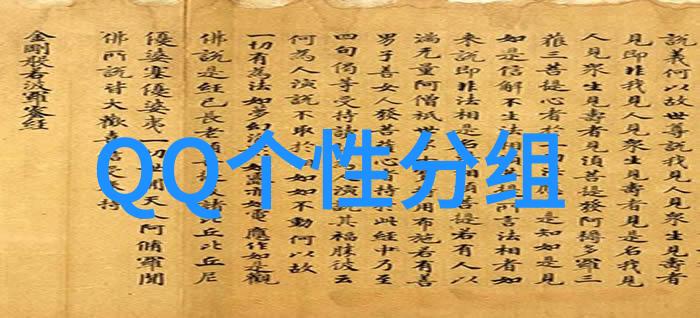 說義何以故世尊說我見人見眾生見壽者
見即非我見人見眾生見壽者見是名我見
人見眾生見壽者見須菩提發阿耨多羅三
藐三菩提心者於一切應如是知如是見
如是信解不生法相須菩提所言法相者如
來說即非法相是名相須菩提若有人以
滿無量阿僧祇世用布施若有善
男子善女人發菩薩心持此經乃至
四句偈等受持讀演說其福勝彼云
何為人演說不取於相如如不動何以故
一切有為法如夢幻如露如電應作如是觀
佛說是經已長老須提及諸比丘比丘尼
優婆塞優婆夷一切世間天人阿脩羅聞
佛所說皆大歡喜信受奉持
金剛般若波羅蜜經
QQ个性分组